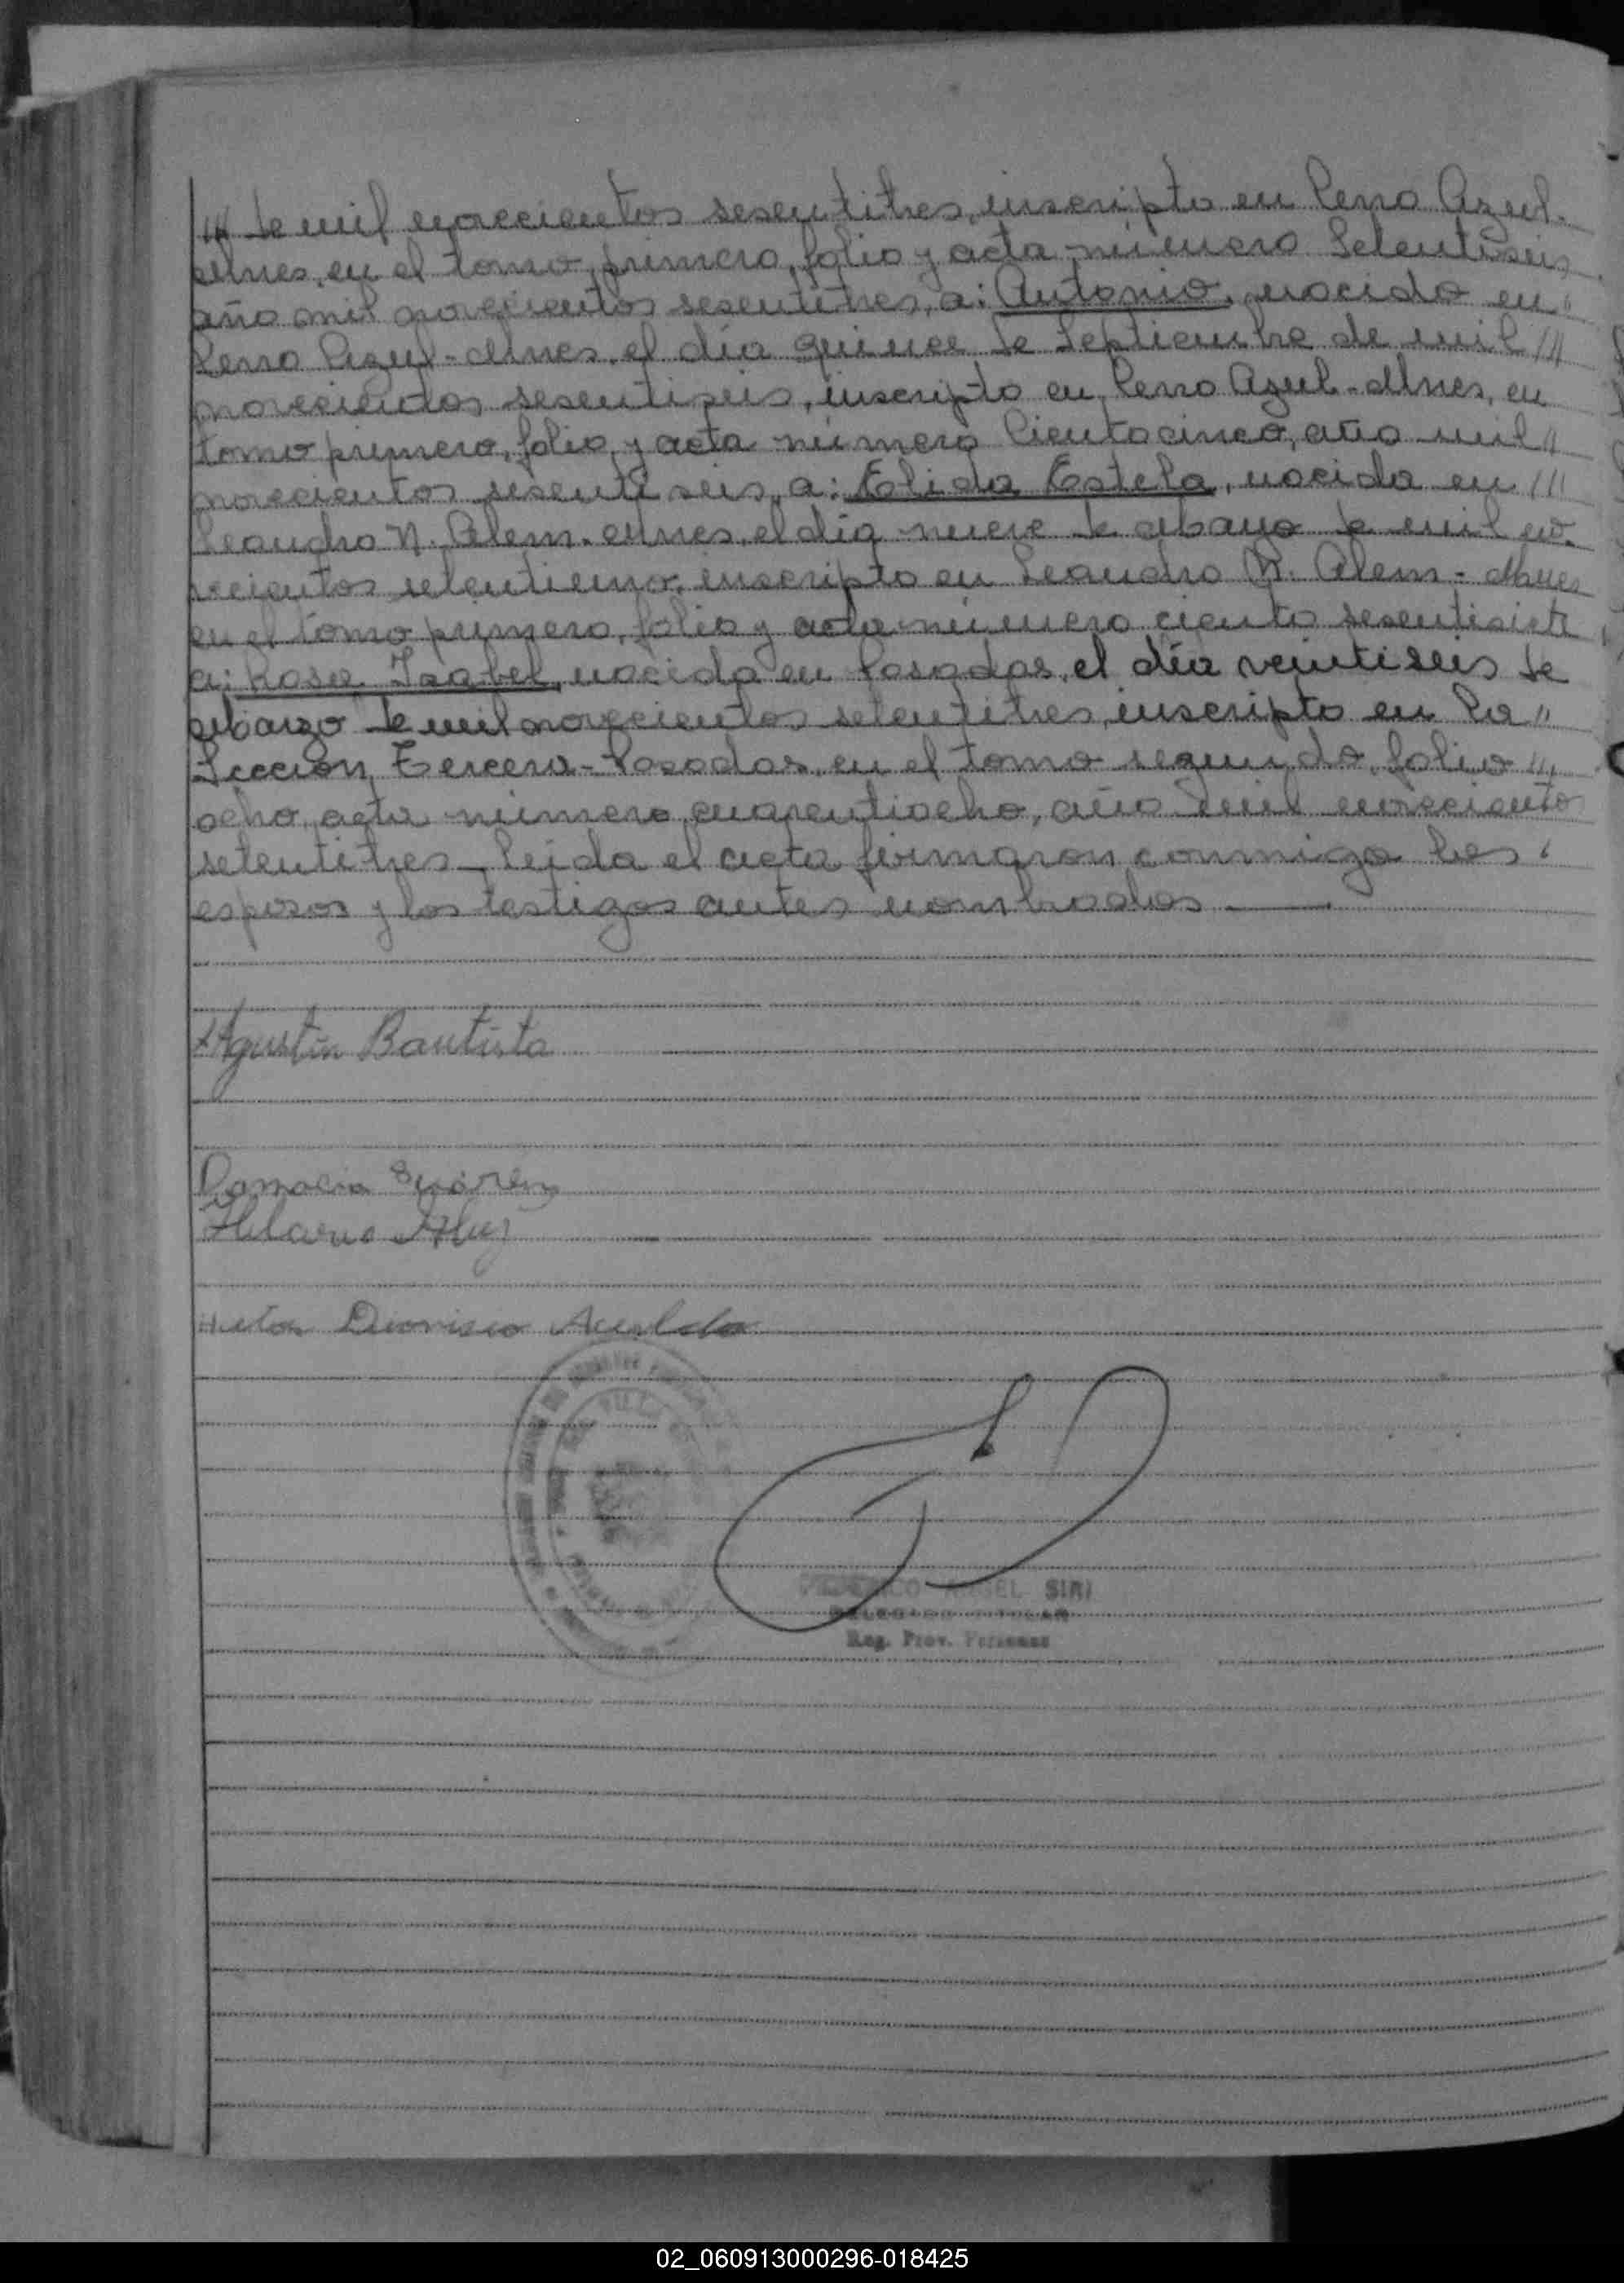 /// de mil novecientos sesentitres, inscripto en Cerro Azul-
Mnes, en el tomo primero, folio y acta número Setentiseis
año mil novecientos sesentitres, a: Antonio, nacido en "
Cerro Azul-Mnes, el día quince de Septiembre de mil ///
novecientos sesentiseis, inscripto en Cerro Azul-Mnes, en
tomo primero, folio y acta número Cientocinco, año mil //
novecientos sesenti seis, a: Elida Estela, nacida en ///
Leandro N. Alem-Mnes, el día nueve de Mayo de mil no-
vecientos setentiuno, inscripto en Leandro N. Alem-Mnes
en el tomo primero, folio y acta número ciento sesentisiete
a: Rosa Isabel, nacida en Posadas, el día veintiseis de
Marzo de mil novecientos setentitres, inscripto en la "
Sección Tercera-Posadas, en el tomo segundo, folio ///
ocho, acta número cuarentiocho, año mil novecientos
setentitres_ Leida el acta firmaron conmigo los
esposos y los testigos antes nombrados.
Agustín Bautista
Damacia Suarez
Hilario
Dionisio
SIRI
Reg. Prov. Personas
02_060913000296-018425